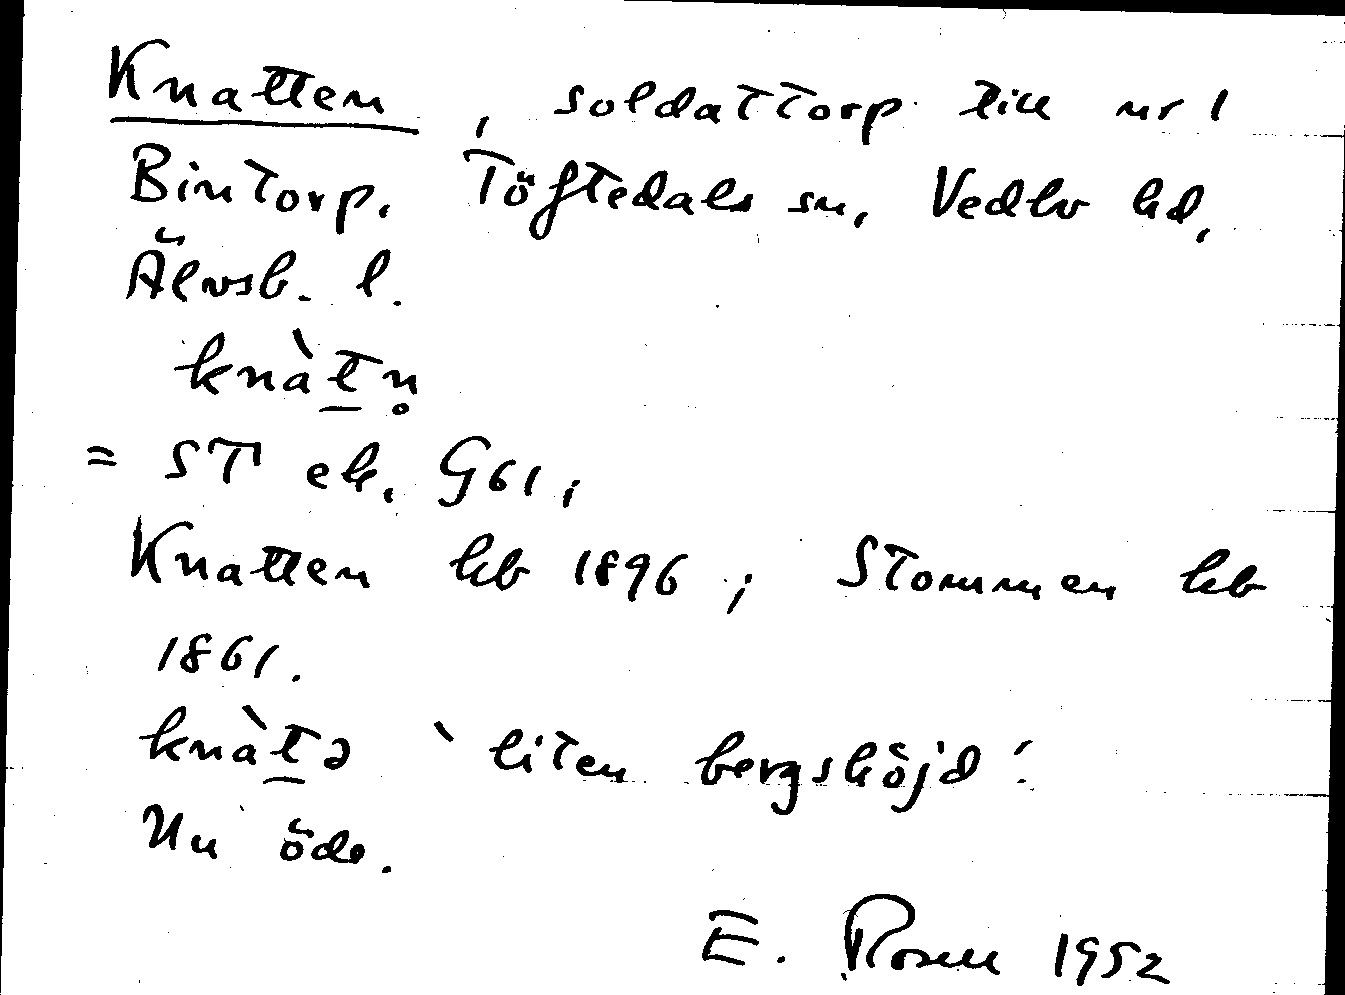 Knatten, soldattorp till nr 1
Bintorp. Töftedals sn, Vedbo hd,
Älvsb. l.
knàt̲n̥
= ST ek. G61;
Knatten hb 1896; Stommen hb
1861.
knàt̲ə ‵liten bergshöjd′.
Nu öde.
E. Rosell 1952